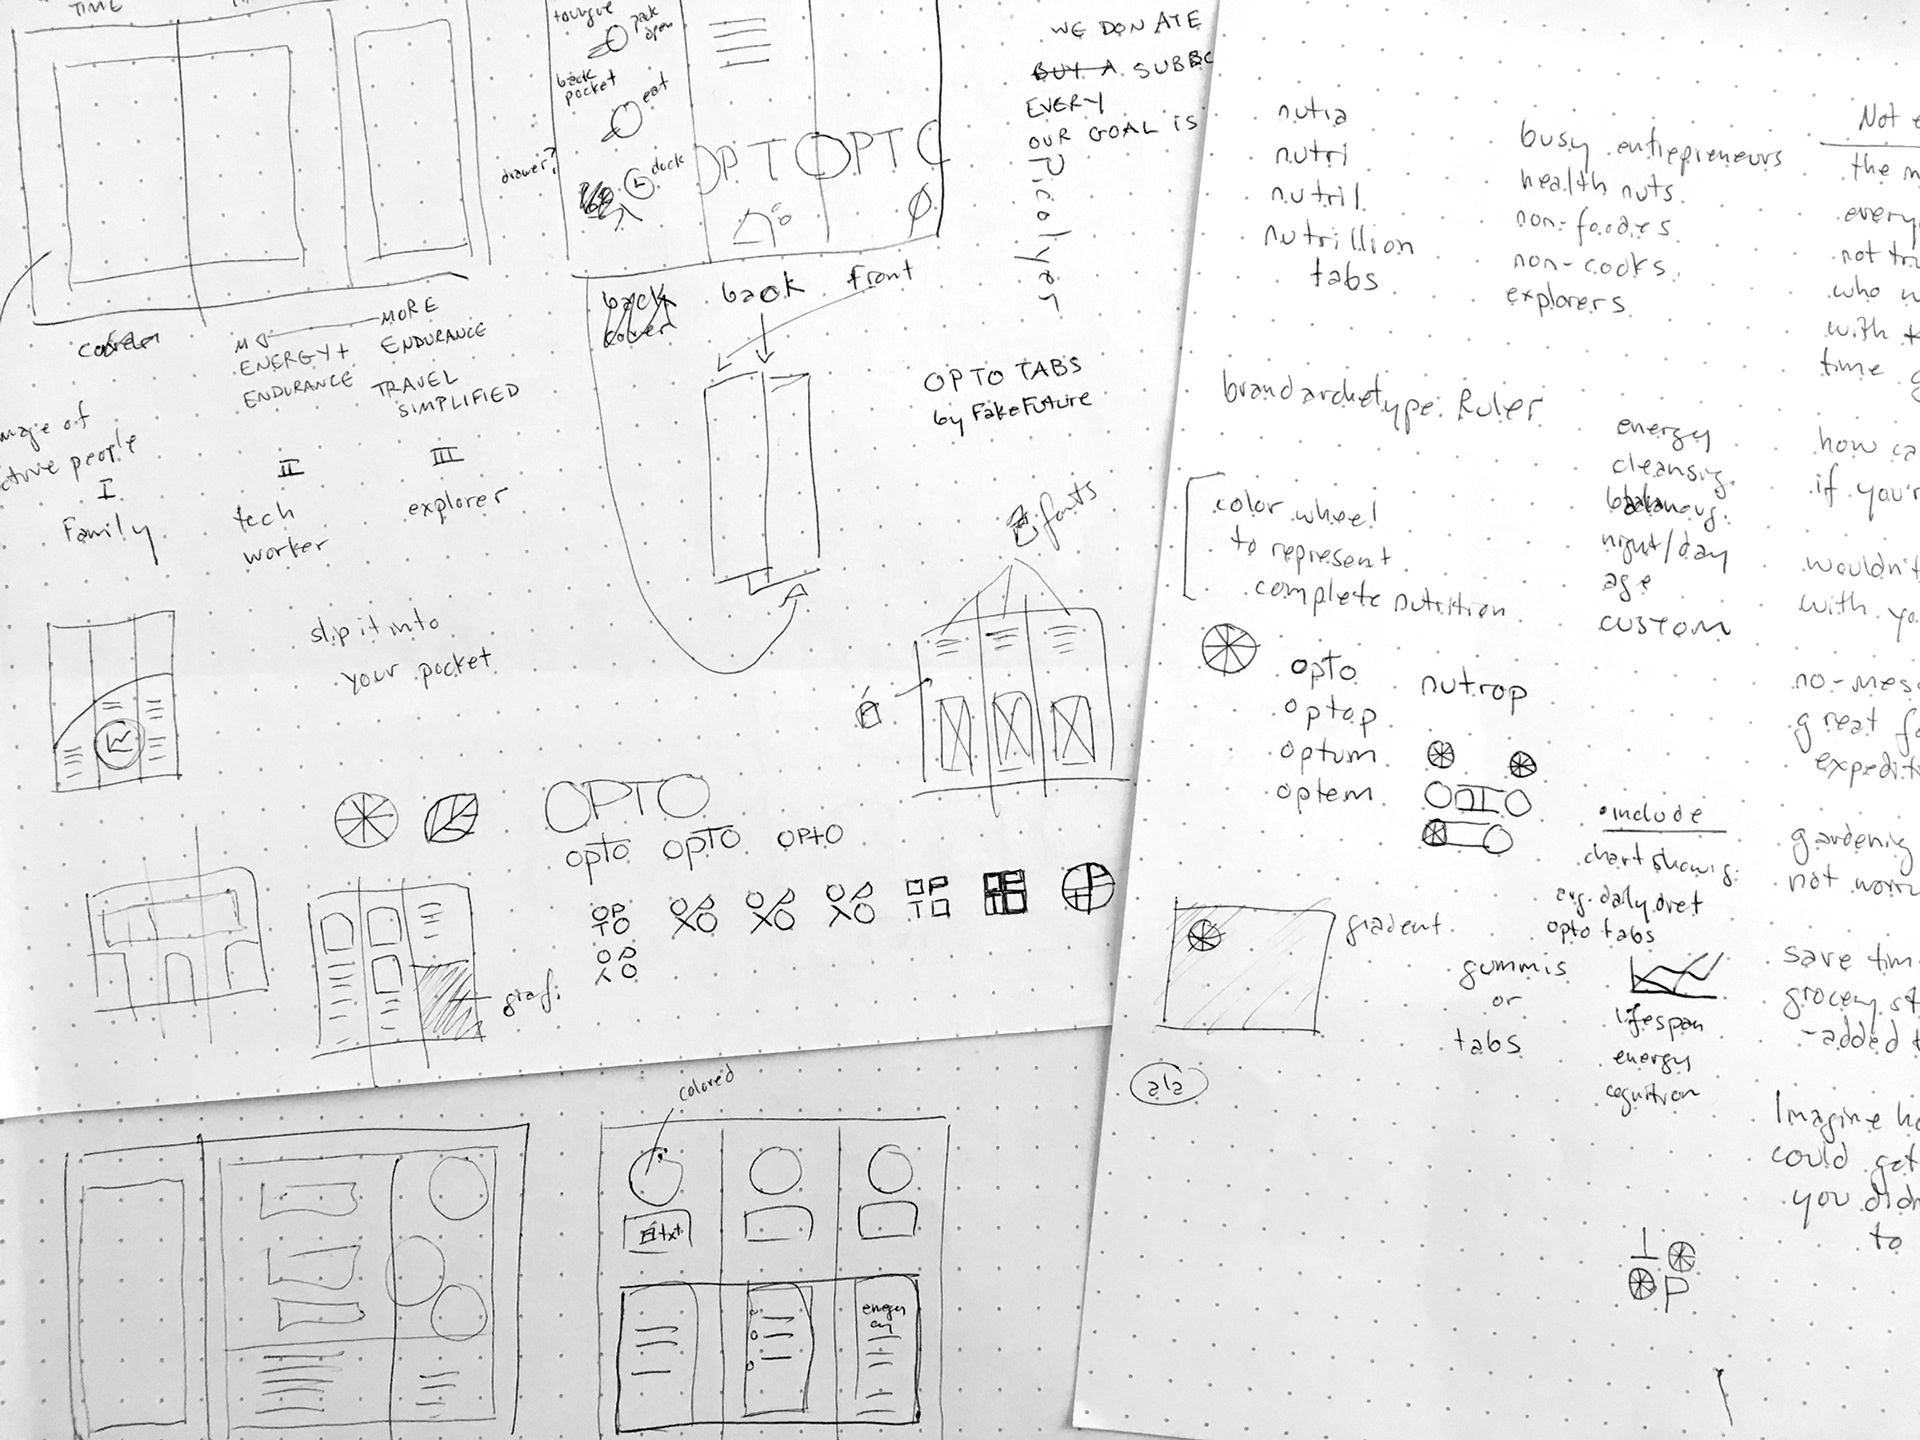 TIME
tongue
pack
open
back
pocket
eat
drawer?
dock
OPTOPTO
back
cover
back
front
WE DONATE
BUY A SUBSC
EVERY
OUR GOAL IS
Picolyer
MORE
ENDURANCE
ENERGY+
ENDURANCE
TRAVEL
SIMPLIFIED
OPTO TABS
by FakeFuture
image of
active people
I
Family
II
tech
worker
III
explorer
slip it into
your pocket
fonts
OPTO
opto opto OPTO
OP
TO
OP
TO
colored
txt
energy
nutra
nutri
nutril
nutrillion
tabs
busy entrepreneurs
health nuts
non-foodies
non-cooks
explorers
brand archetype: Ruler
color wheel
to represent
complete nutrition
energy
cleansing
balancing
night/day
age
CUSTOM
opto
optop
optum
optem
nutrop
• include
chart showing
avg. daily diet
opto tabs
lifespan
energy
cognition
gradient
gummis
or
tabs
Not
the
every
not
who
with
time
how
if you'r
wouldn't
with
no-mess
great
gardening
not
save time
grocery
-added
Imagine
could get
you
to
P